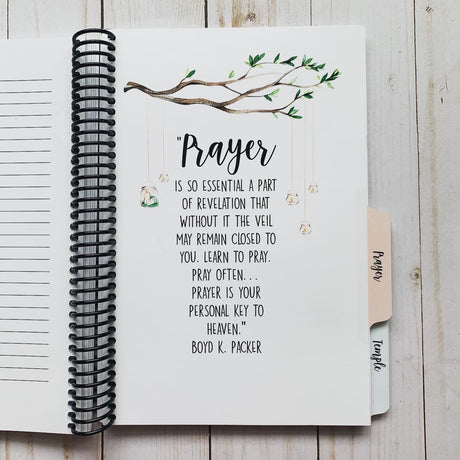 "Prayer
IS SO ESSENTIAL A PART
OF REVELATION THAT
WITHOUT IT THE VEIL
MAY REMAIN CLOSED TO
YOU. LEARN TO PRAY.
PRAY OFTEN...
PRAYER IS YOUR
PERSONAL KEY TO
HEAVEN."
BOYD K. PACKER
Prayer
Temple